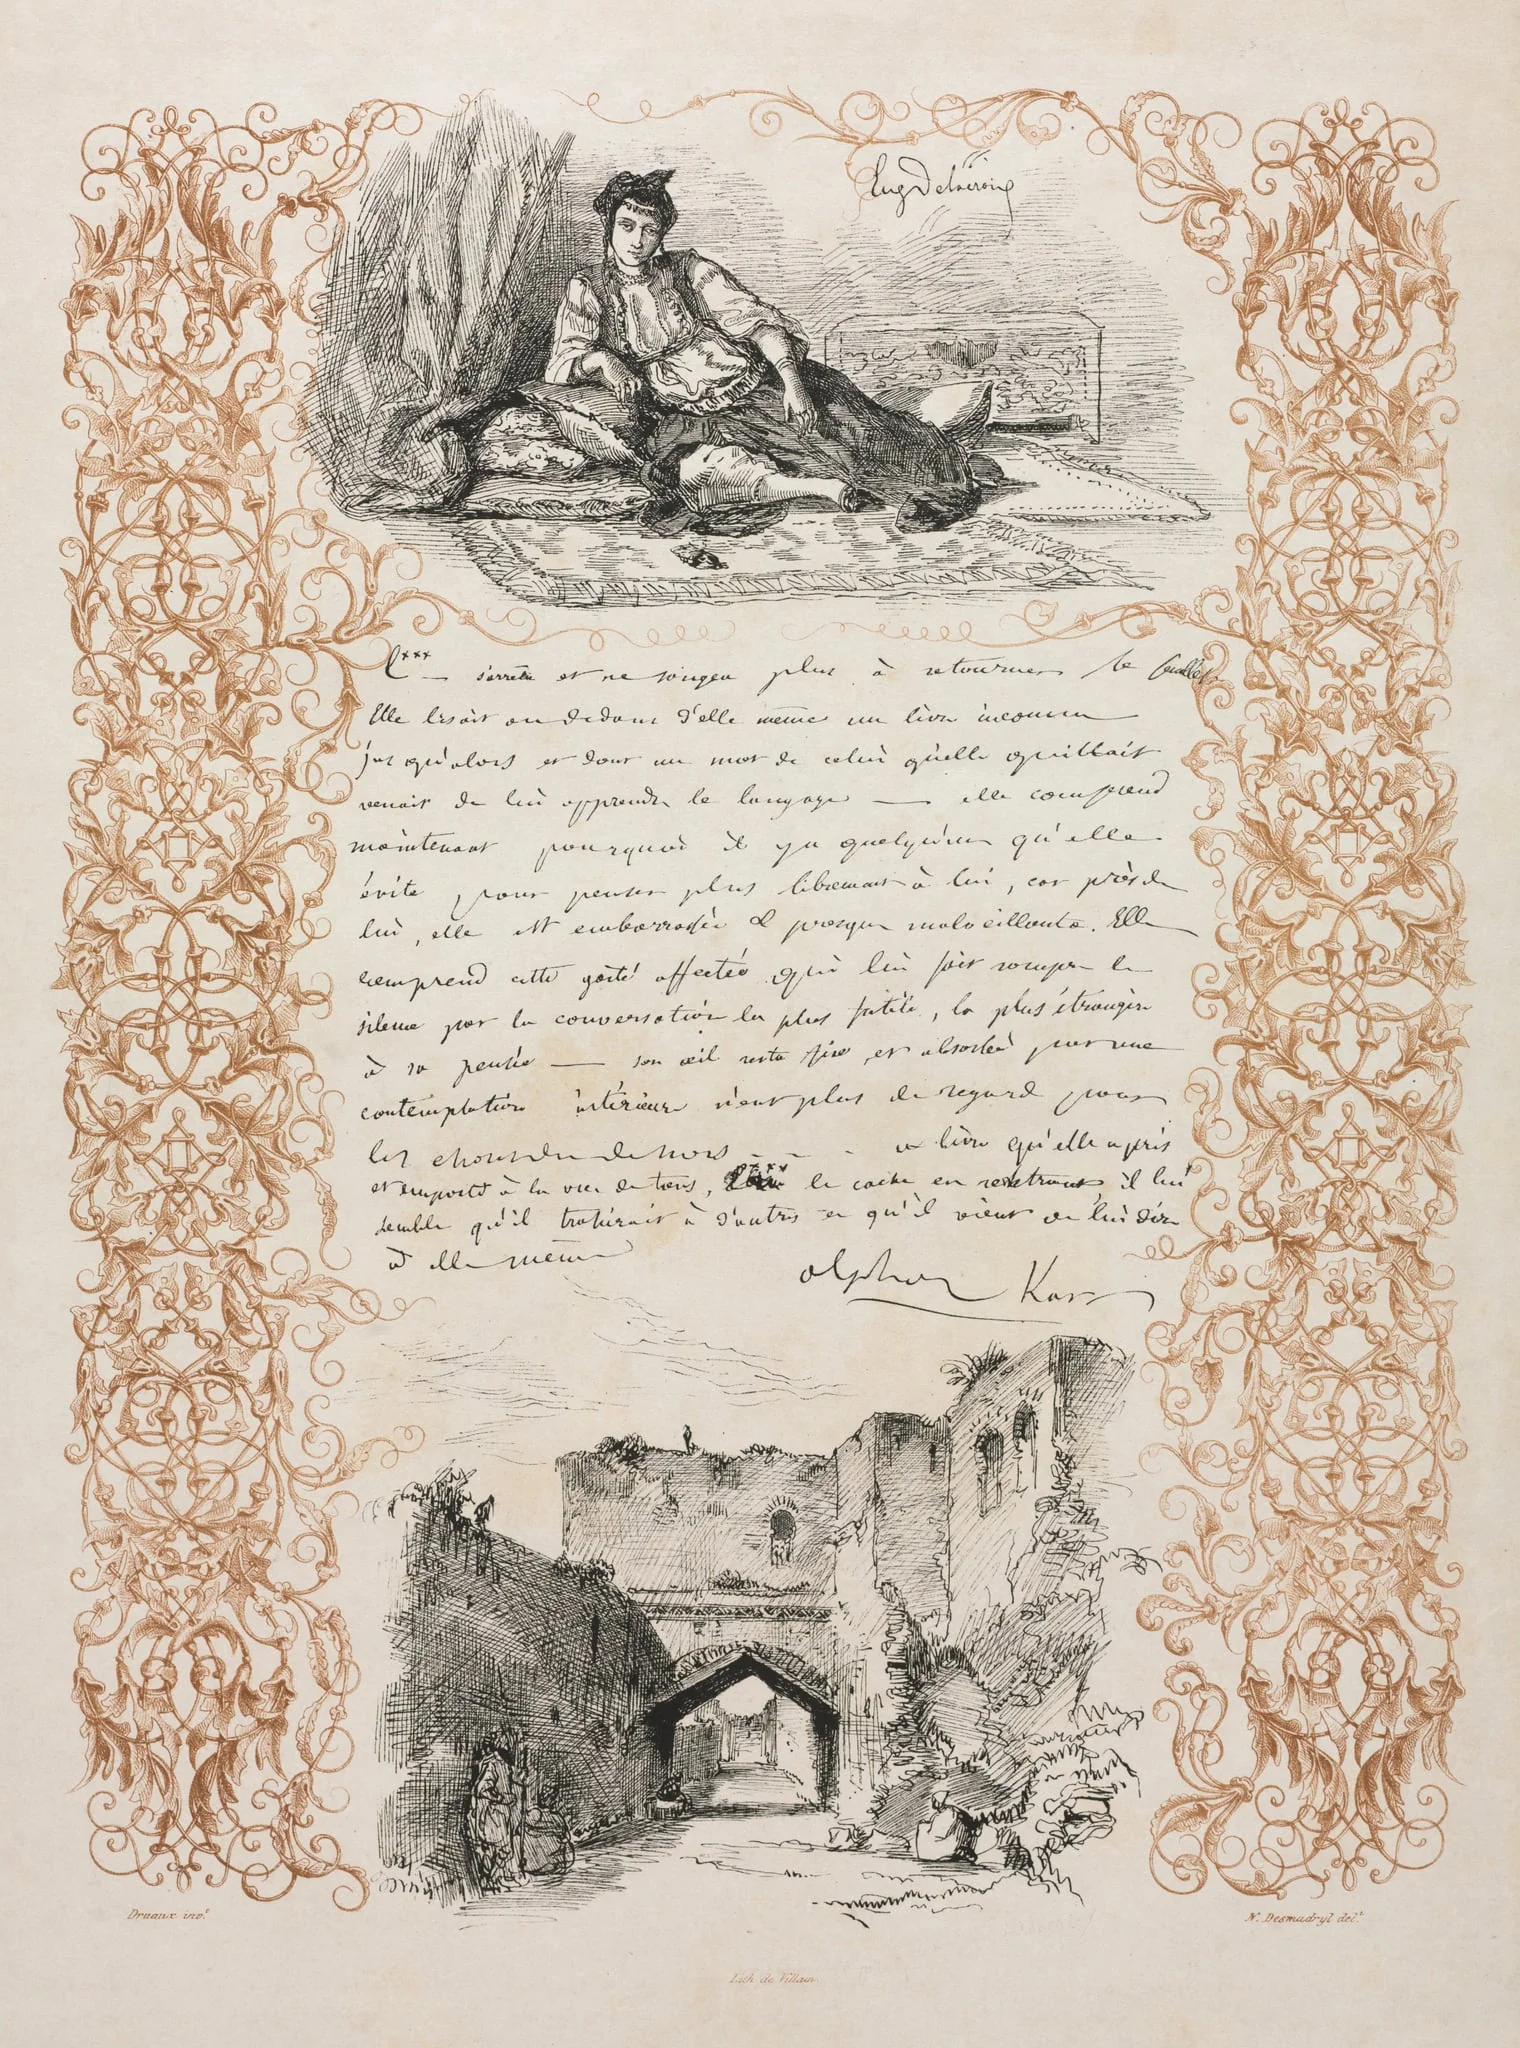 Eug Delacroix
C*** s'arrêta et ne songea plus à retourner le feuillet.
Elle lisait au dedans d'elle même un livre inconnu
jusqu'alors et dont un mot de celui qu'elle quittait
venait de lui apprendre le langage — elle comprend
maintenant pourquoi il y a quelqu'un qu'elle
évite pour penser plus librement à lui, car près de
lui, elle est embarrassée & presque malveillante. Elle
comprend cette gaité affectée qui lui fait rompre le
silence par la conversation la plus futile, la plus étrangère
à sa pensée — son œil reste fixe et absorbé par une
contemplation intérieure n'eut plus de regard pour
les choses du dehors - - - ce livre qu'elle a pris
et emporté à la vue de tous, le cache en rentrant il lui
semble qu'il trahirait à d'autres ce qu'il vient de lui dire
à elle même
alphonse Karr
Druaux inv.t
N. Desmadryl del.t
Lith. de Villain.